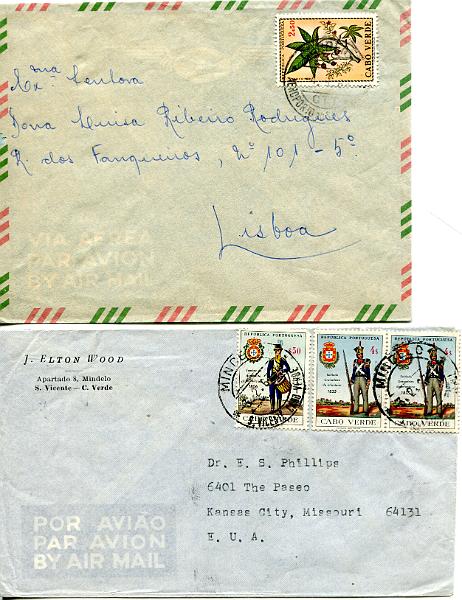 2$50
CABO VERDE
CTT
AEROPORTO
Exma Senhora
Dona Luisa Ribeiro Rodrigues
R. dos Fanqueiros, Nº 101 - 5º
Lisboa
VIA AEREA
PAR AVION
BY AIR MAIL
J. ELTON WOOD
Apartado 8, Mindelo
S. Vicente — C. Verde
REPUBLICA PORTUGUESA
$50
MINDELO
S. VICENTE
REPUBLICA PORTUGUESA
4$
1820
CABO VERDE
REPUBLICA PORTUGUESA
4$
CABO VERDE
MINDELO
Dr. E. S. Phillips
6401 The Paseo
Kansas City, Missouri 64131
E. U. A.
POR AVIÃO
PAR AVION
BY AIR MAIL